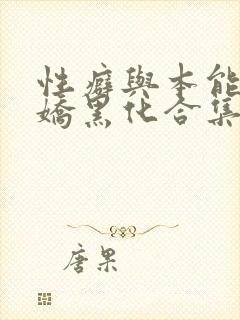 性癖與本能
嬌黑化合集
唐果